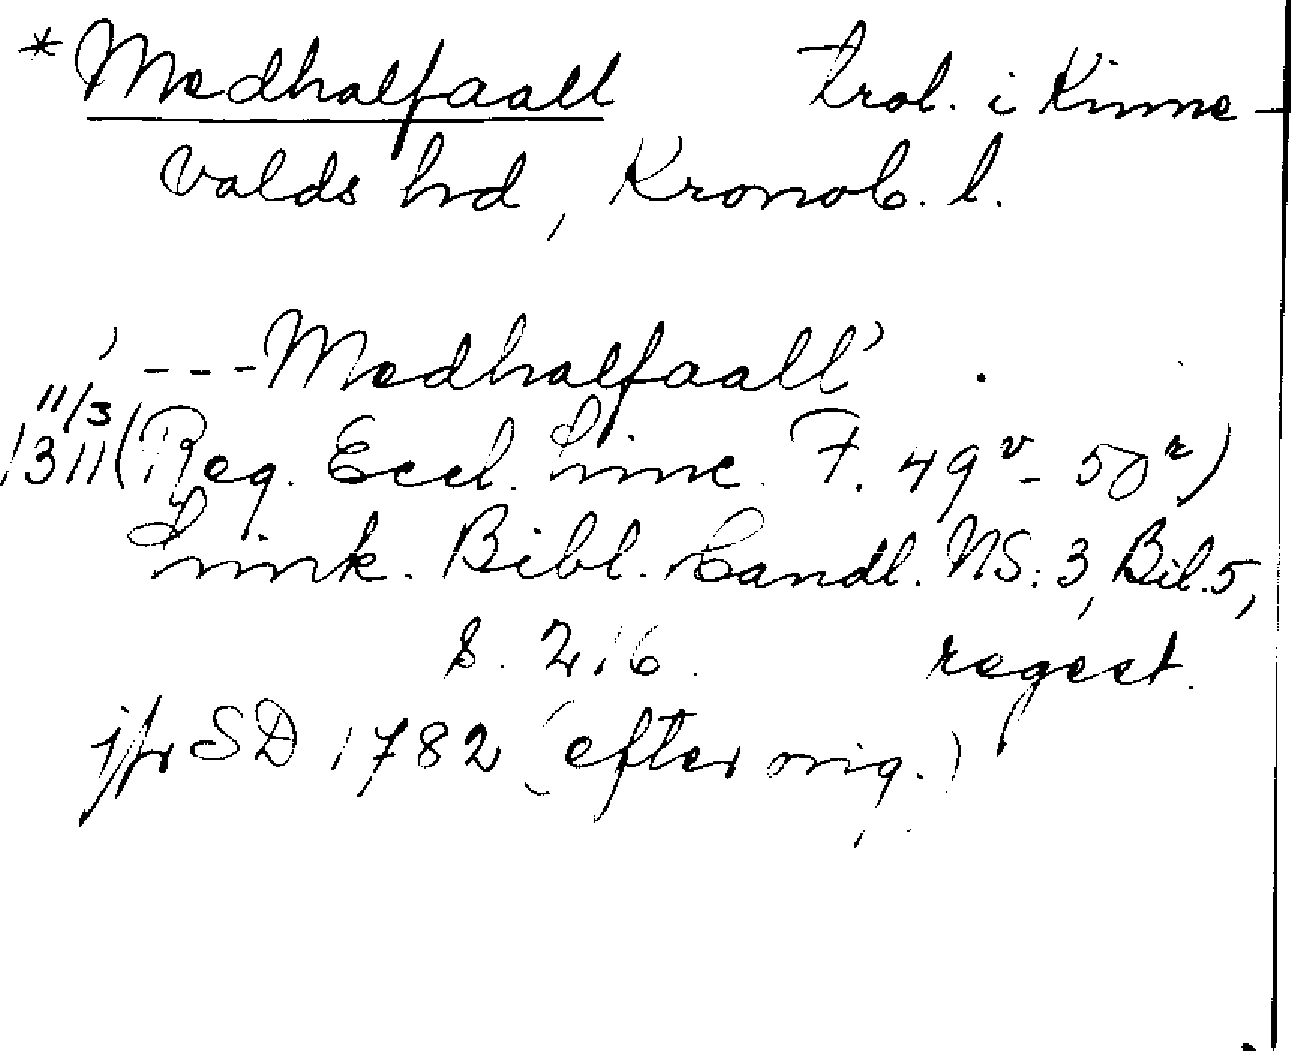 *Medhalfaall trol. i Kinne-
valds hd, Kronob. l.
'---Medhalfaall'.
11/3
1311 (Reg. Eccl. Linc. F. 49v-50r)
Link. Bibl. Handl. NS: 3, Bil. 5,
s. 216. regest.
jfr SD 1782 (efter orig.)